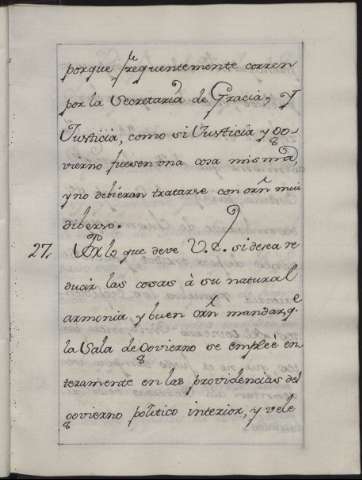 porque frequentemente corren
por la Secretaria de Gracia, y
Justicia, como si Justicia y Go-
vierno fuesen una cosa misma,
y no debieran tratarse con orn mui
diberso.
27. Por lo que deve V.E. si desea re
ducir las cosas à su natural
armonia y buen orn mandar, qe
la Sala de Govierno se empleè en
teramente en las providencias del
govierno politico interior, y vele